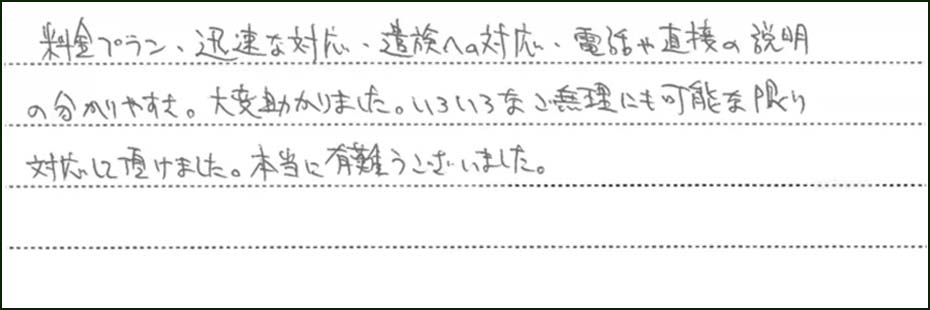 料金プラン、迅速な対応、遺族への対応、電話や直接の説明
の分かりやすさ。大変助かりました。いろいろなご無理にも可能な限り
対応して頂けました。本当に有難うございました。